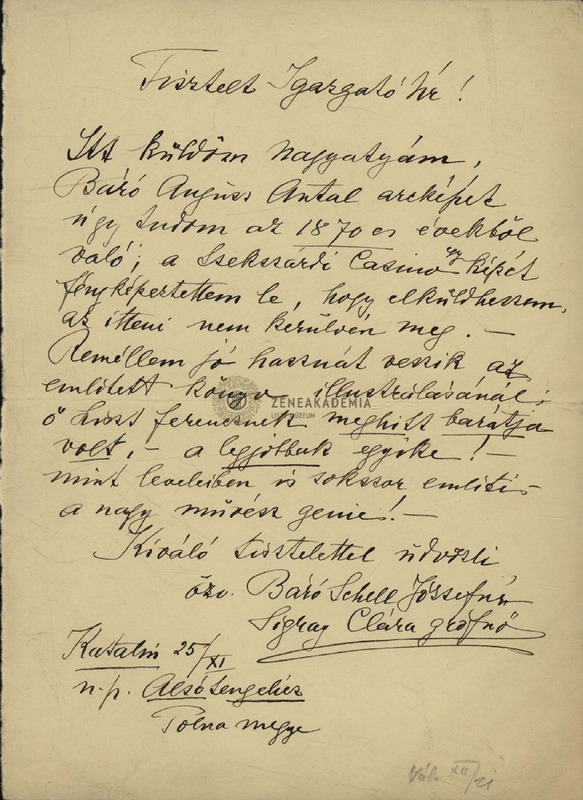 Tisztelt Igazgató Úr!
Itt küldöm nagyatyám,
Báró Augusz Antal arcképet
úgy tudom az 1870 es évekből
való; a Szekszárdi Casino egy képét
fényképeztettem le, hogy elküldhessem,
az itteni nem kerülvén meg. –
Reméllem jó hasznát veszik az
említett könyv illustrálásánál;
ő Liszt ferencznek meghitt barátja
volt, – a legjobbak egyike! –
mint leveleiben is sokszor említi
a nagy művész genie! –
Kiváló tisztelettel üdvözli
özv. Báró Schell Józsefné
Sigray Clára grófnő
Katalin 25/XI
u. p. Alsótengelicz
Tolna megye
Vál. XII/21
ZENEAKADÉMIA
LISZT MÚZEUM